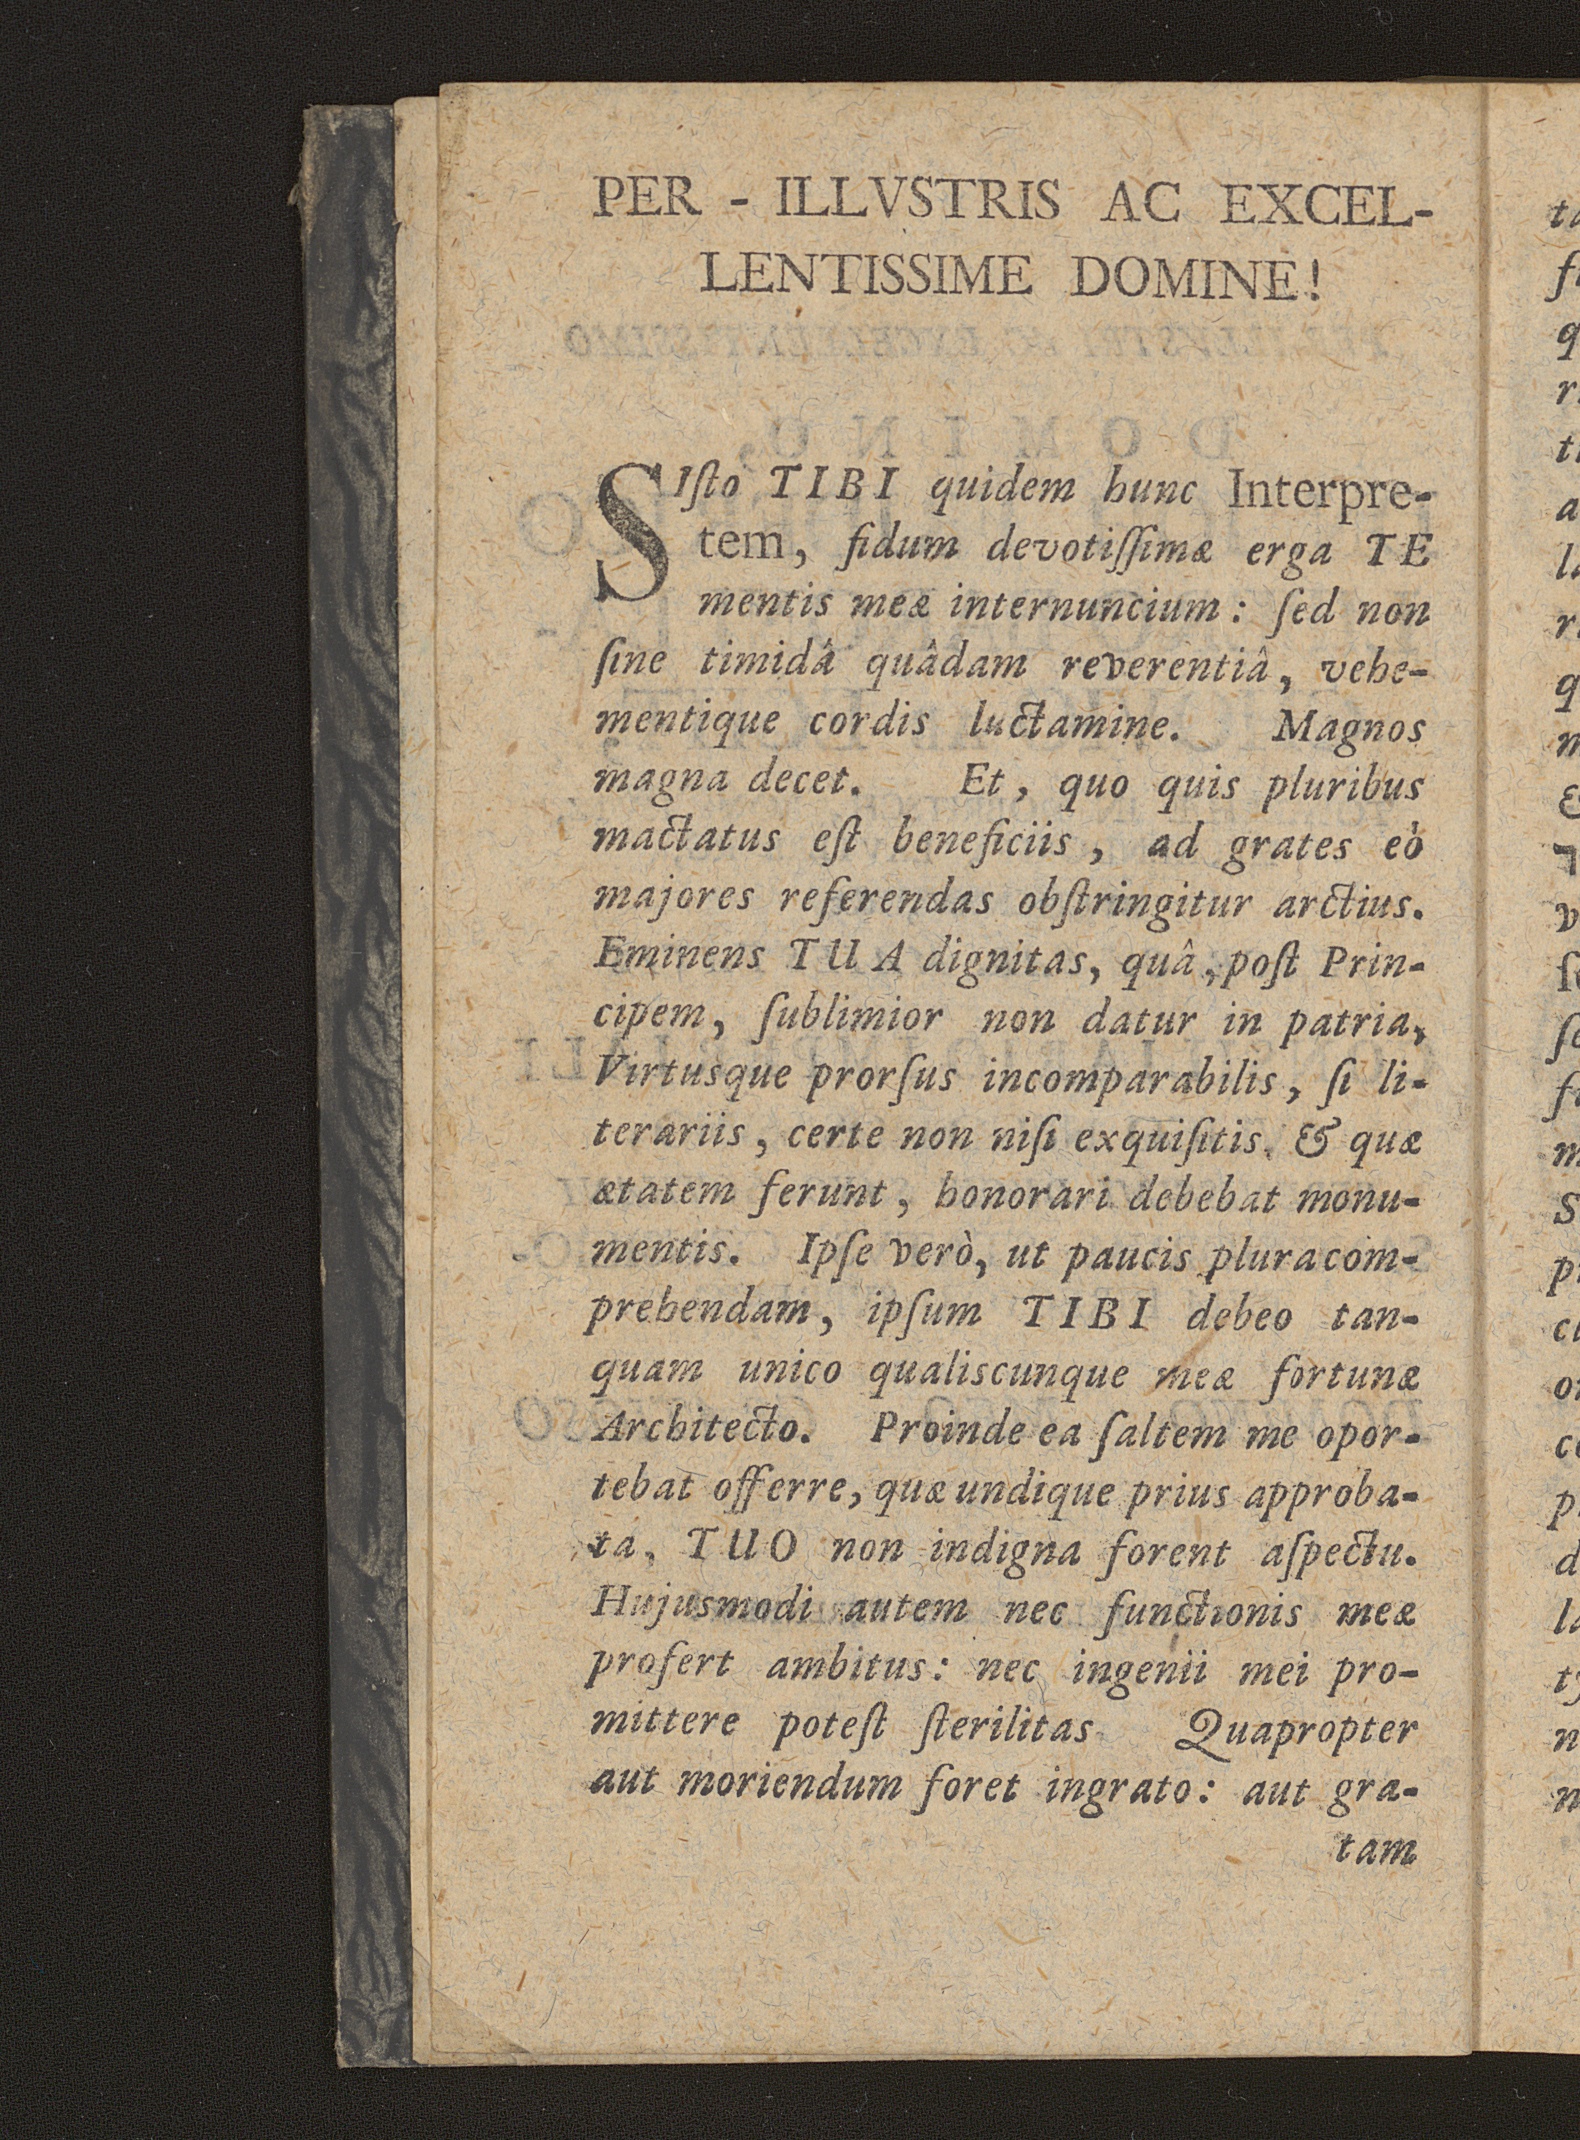 PER - ILLVSTRIS AC EXCEL-
LENTISSIME DOMINE!
SIſto TIBI quidem hunc Interpre-
tem, fidum devotiſſimæ erga TE
mentis meæ internuncium: ſed non
ſine timidâ quâdam reverentiâ, vehe-
mentique cordis luctamine. Magnos
magna decet. Et, quo quis pluribus
mactatus eſt beneficiis, ad grates eò
majores referendas obſtringitur arctius.
Eminens TUA dignitas, quâ, poſt Prin-
cipem, ſublimior non datur in patria,
Virtusque prorſus incomparabilis, ſi li-
terariis, certe non niſi exquiſitis, & quæ
ætatem ferunt, honorari debebat monu-
mentis. Ipſe verò, ut paucis pluracom-
prehendam, ipſum TIBI debeo tan-
quam unico qualiscunque meæ fortunæ
Architecto. Proinde ea ſaltem me opor-
tebat offerre, quæ undique prius approba-
ta, TUO non indigna forent aſpectu.
Hujusmodi autem nec functionis meæ
profert ambitus: nec ingenii mei pro-
mittere poteſt ſterilitas Quapropter
aut moriendum foret ingrato: aut gra-
tam